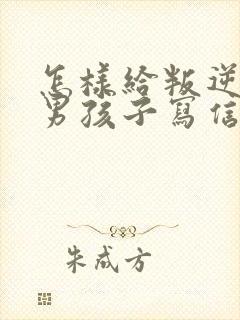 怎樣給叛逆
男孩子寫信
朱成方